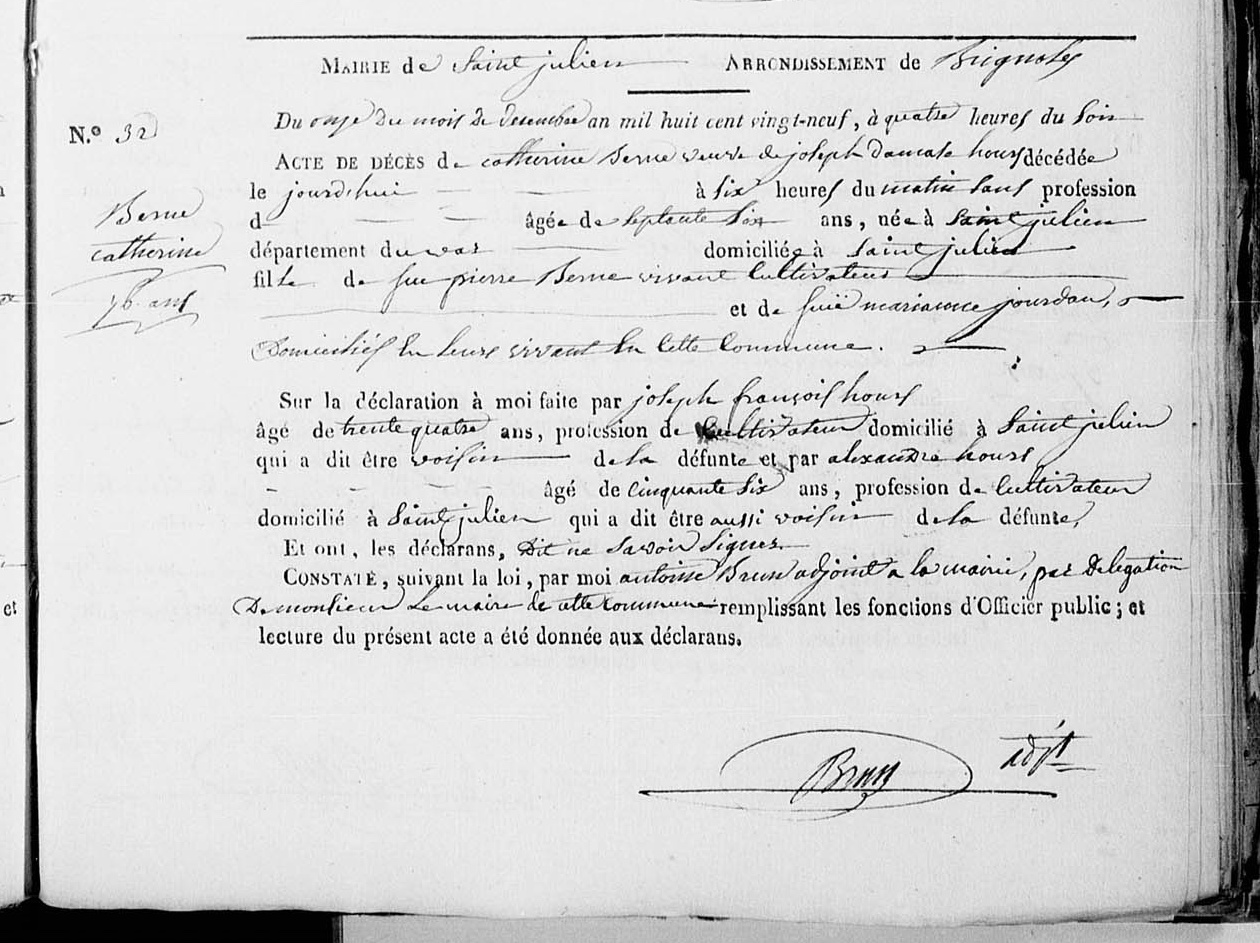 MAIRIE de Saint julien ARRONDISSEMENT de Brignoles
N.º 32
Du onze du mois de decembre an mil huit cent vingt-neuf, à quatre heures du Soir
ACTE DE DÉCÈS de catherine Berne veuve de joseph hours décédée
le jourd'hui à six heures du matin Sans profession
Berne
d âgée de Septante Six ans, née à Saint julien
catherine
département du var domiciliée à Saint julien
fille de feu pierre Berne vivant Cultivateur
76 ans
et de feüe marianne jourdan,
Domiciliés En leurs vivant En Cette Commune.
Sur la déclaration à moi faite par joseph françois hours
âgé de trente quatre ans, profession de Cultivateur domicilié à Saint julien
qui a dit être voisin de la défunte et par alexandre hours
âgé de cinquante Six ans, profession de Cultivateur
domicilié à Saint julien qui a dit être aussi voisin de la défunte,
Et ont, les déclarans, Dit ne Savoir Signer
CONSTATÉ, suivant la loi, par moi antoine Brun adjoint a la mairie, par Delegation
De monsieur Le maire de cette commune remplissant les fonctions d'Officier public ; et
lecture du présent acte a été donnée aux déclarans.
Brun adjt
et